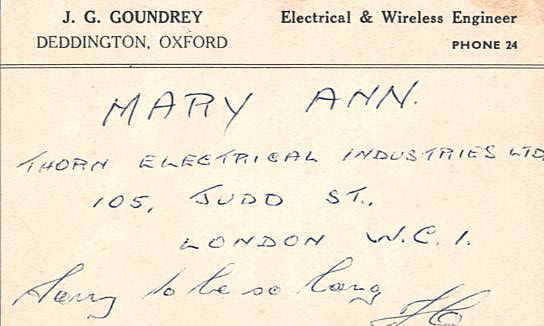 J. G. GOUNDREY Electrical & Wireless Engineer
DEDDINGTON, OXFORD PHONE 24
MARY ANN.
THORN ELECTRICAL INDUSTRIES LTD
105, JUDD ST.,
LONDON W.C.1.
Sorry to be so long
JG